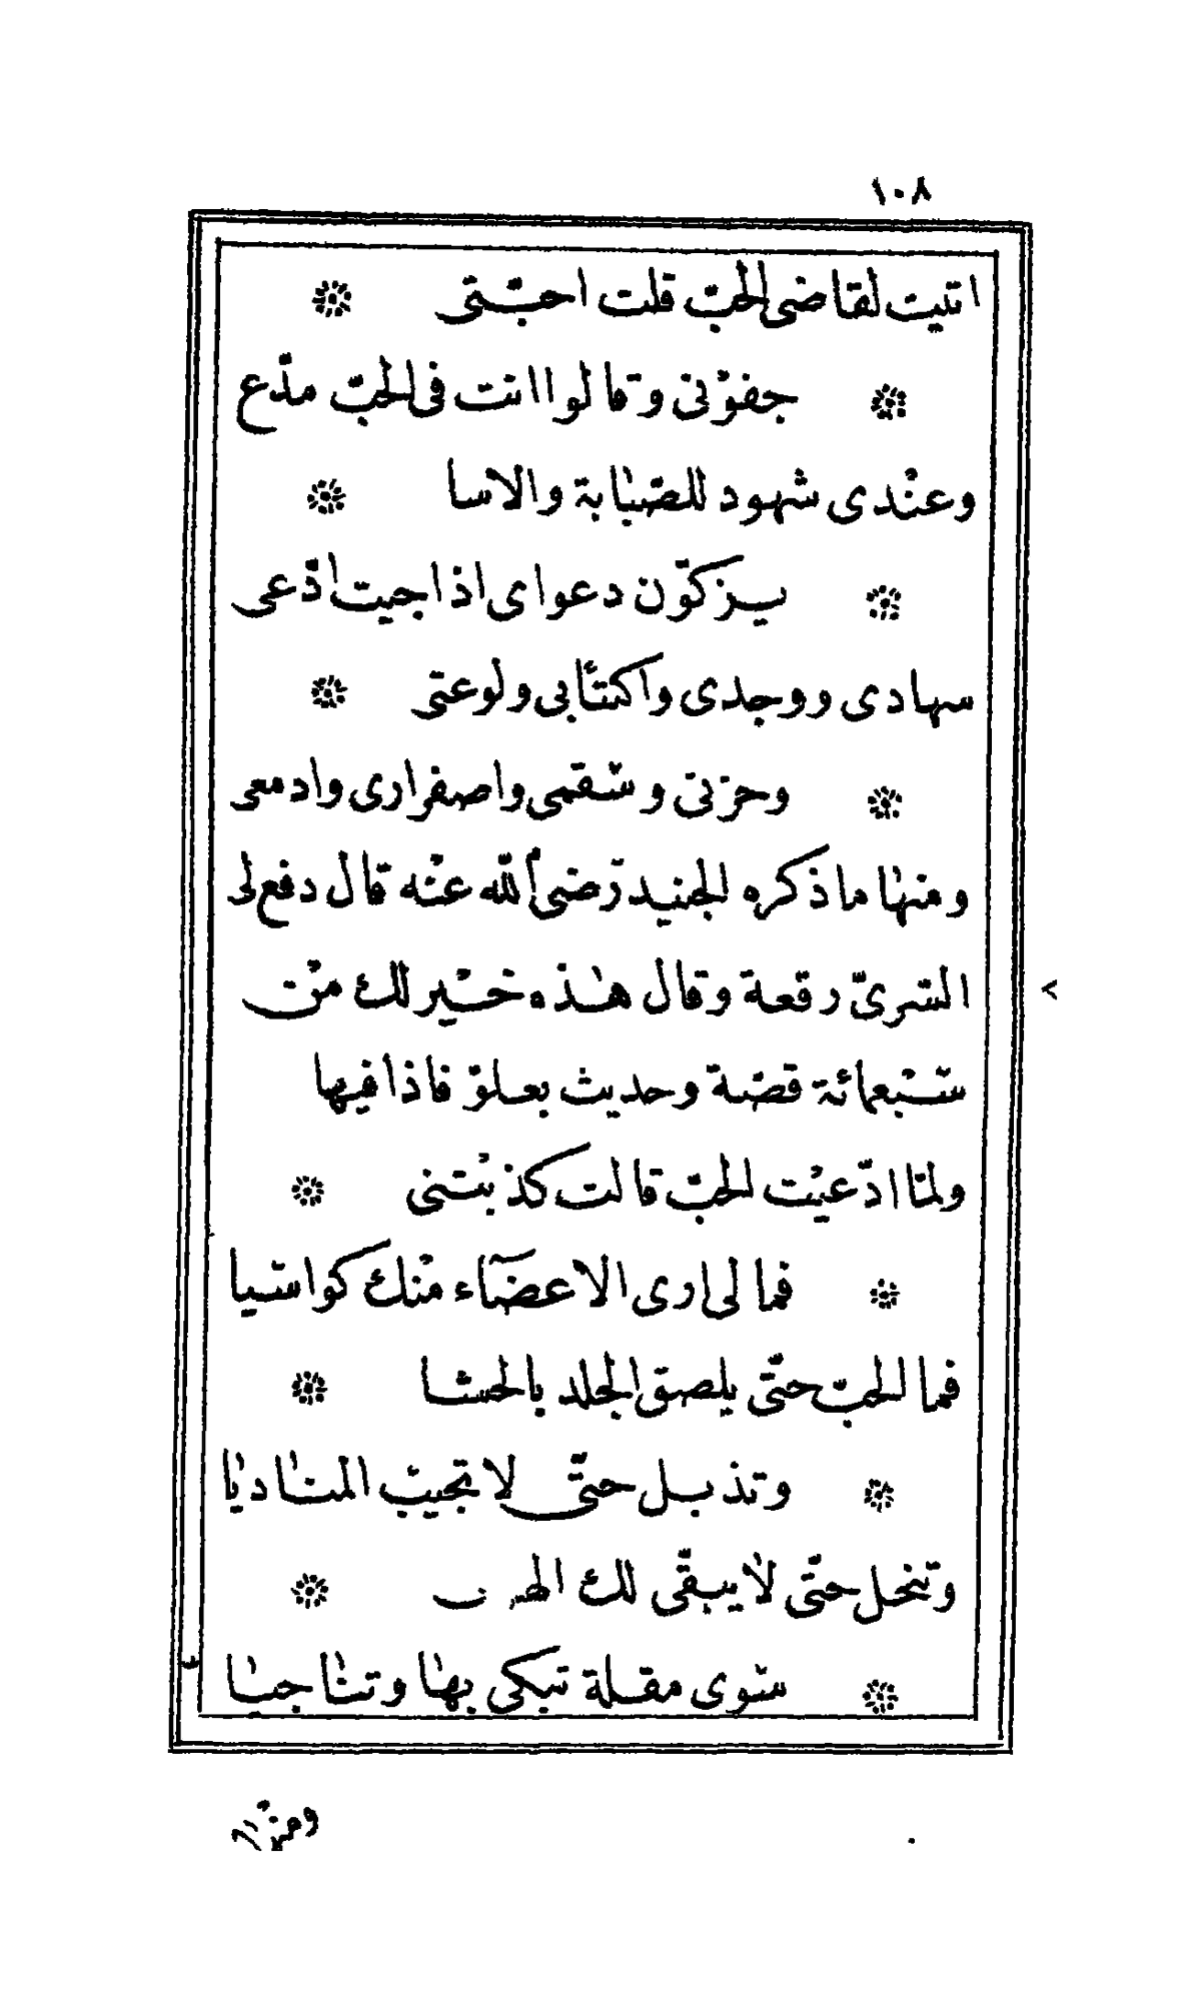 ١٠٨
اتيت لقاضى الحبّ قلت احبّتى
جفوْنى وقالوا انت فى الحبّ مدّع
وعنْدى شهود للصّبابة والاسا
يزكّون دعواى اذا جيت ادّعى
سهادى ووجدى واكتئابى ولوعتى
وحزنى وسْقمى واصفرارى وادمعى
ومنها ما ذكره الجنيد رَضى الله عنْه قال دفع لى
السّرىّ رقعة وقال هٰذه خيْر لك منْ
سَبْعمائة قصّة وحديث بعلوّ فاذا فيها
ولمّا ادّعيْت الحبّ قالت كذبْتنى
فما لى ارى الاعضَآء منْك كواسَيا
فما الحبّ حتّى يلصق الجلد بالحشا
وتذبل حتّى لا تجيب المنَاديَا
وتنحل حتّى لَا يبقّى لك
سوى مقلة تبكى بهَا وتنَاجيَا
ومنْها